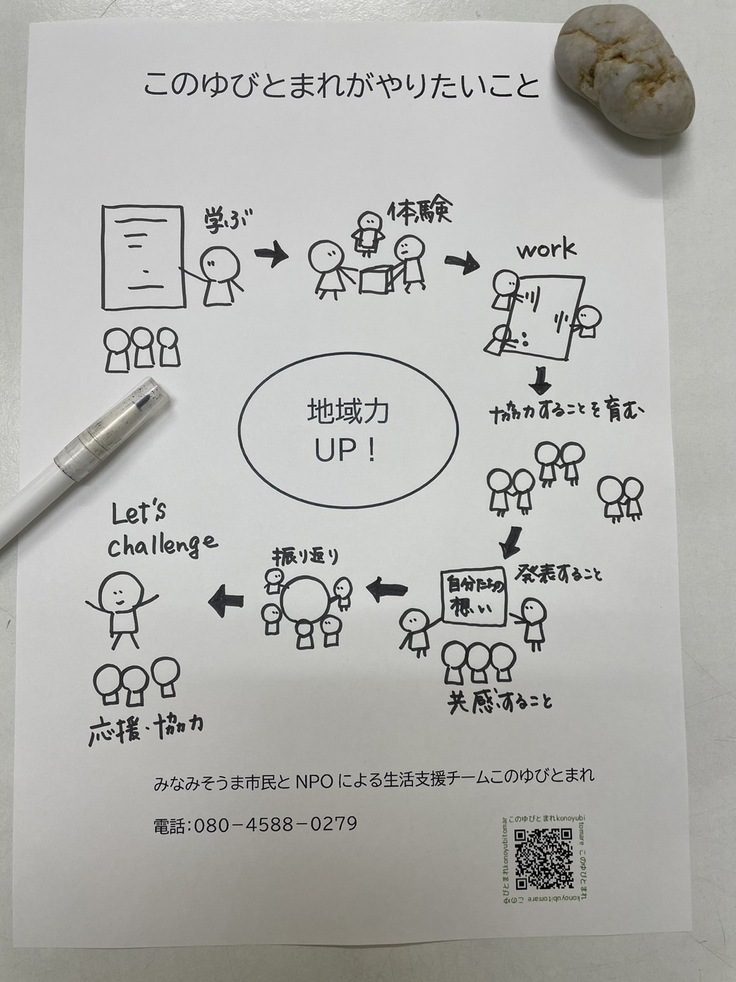 このゆびとまれがやりたいこと
学ぶ
体験
work
地域力
UP！
協力することを育む
Let's
challenge
振り返り
自分たちの
想い
発表すること
共感すること
応援・協力
みなみそうま市民とNPOによる生活支援チームこのゆびとまれ
電話：080－4588－0279
このゆびとまれkonoyubitomare
このゆびとまれkonoyubitomare
このゆびとまれkonoyubitomare